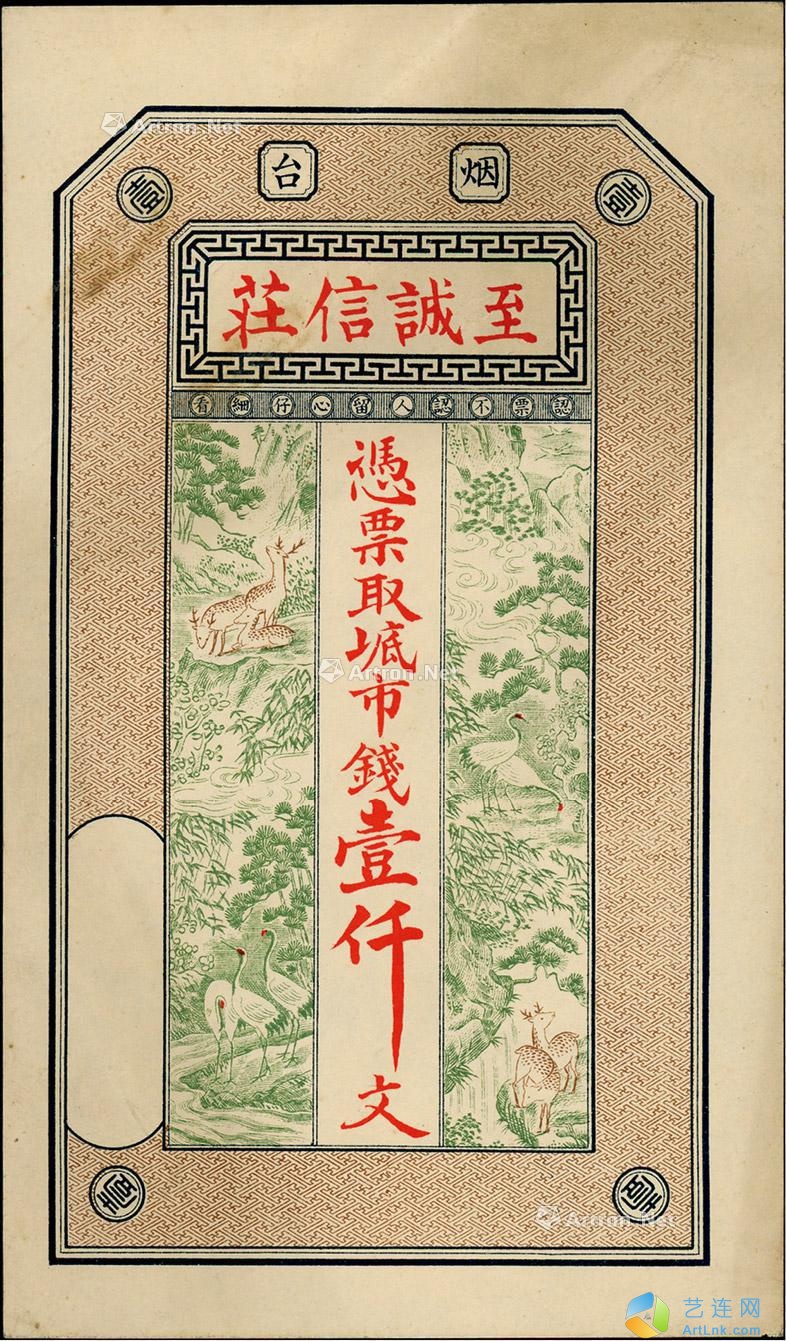 烟台
壹
壹
至誠信莊
認票不認人留心仔細看
憑票取㡳市錢壹仟文
壹
壹
Artron.Net
Artron.Net
Artron.Net
艺连网
ArtLnk.com